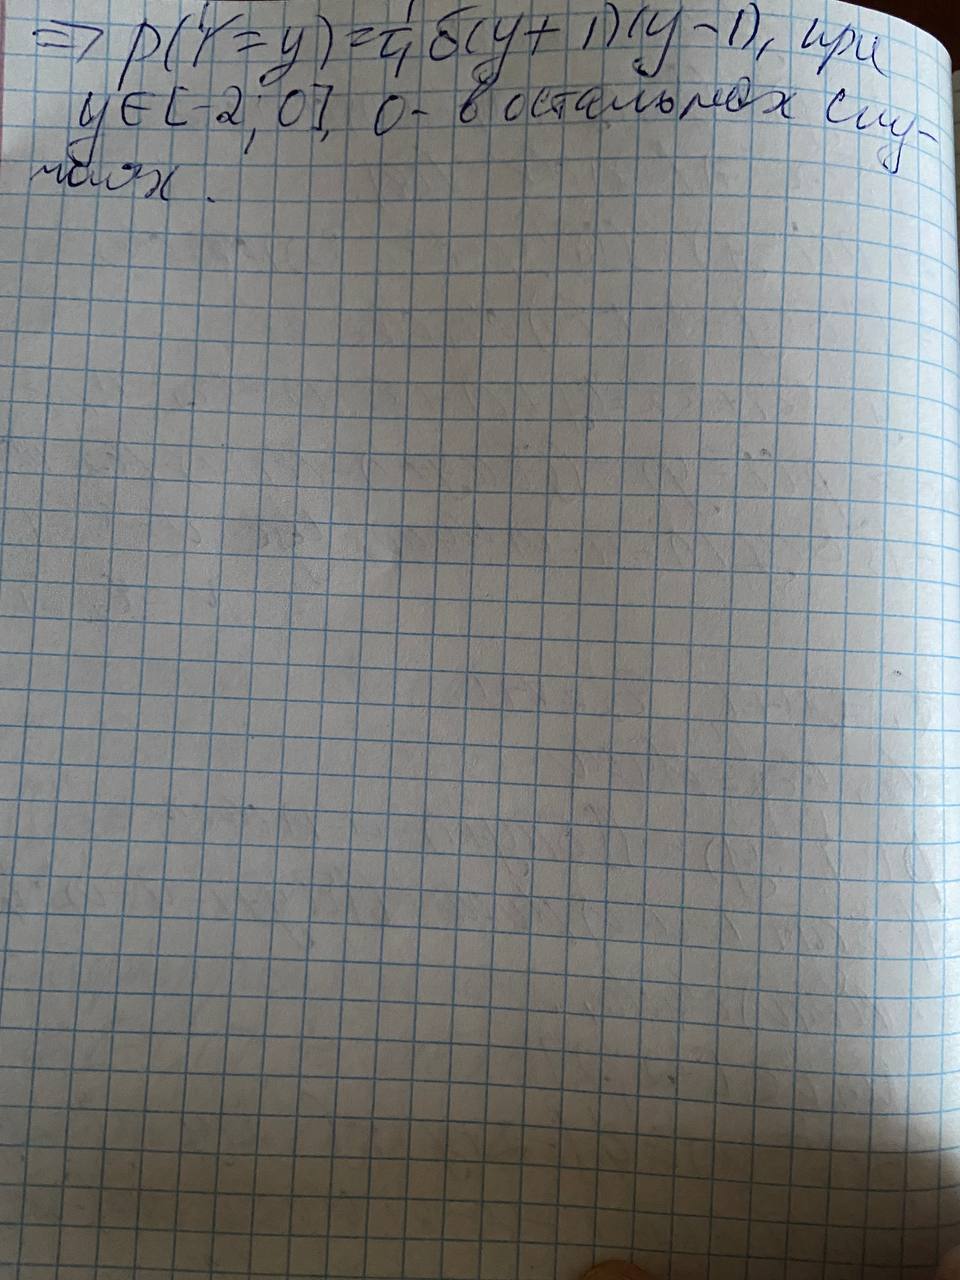 => p(Y=y)=1/4 δ(y+1)(y-1), при
y∈[-2; 0], 0 - в остальных слу-
чаях.